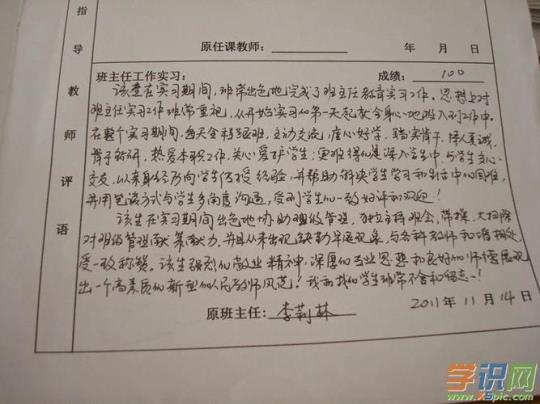 指导教师评语
原任课教师： 年 月 日
班主任工作实习： 成绩： 100
该生在实习期间，非常出色地完成了班主任教育实习工作。思想上对
班主任实习工作非常重视，从开始实习的第一天起就全身心地投入到工作中。
在整个实习期间，每天全程跟班，主动交流，虚心好学，踏实肯干，待人真诚，
肯于钻研，热爱本职工作，关心爱护学生；更难得的是深入学生中，与学生交心
交友，以亲身经历向学生传授经验，并帮助解决学生学习和生活中的困难，
并用笔谈方式与学生多角度沟通，受到学生的一致好评和欢迎！
该生在实习期间出色地协助班级管理，独立主持班会，课操，大扫除
对班级管理献策献力，并且从未出现缺勤早退现象，与各科教师和谐相处，
受一致称赞。该生强烈的敬业精神，深厚的专业思想和良好的师德展现
出一个高素质的新型的人民教师风范！我和我的学生非常不舍和留恋！
原班主任：李莉林
2011年11月14日
学识网
www.xspic.com